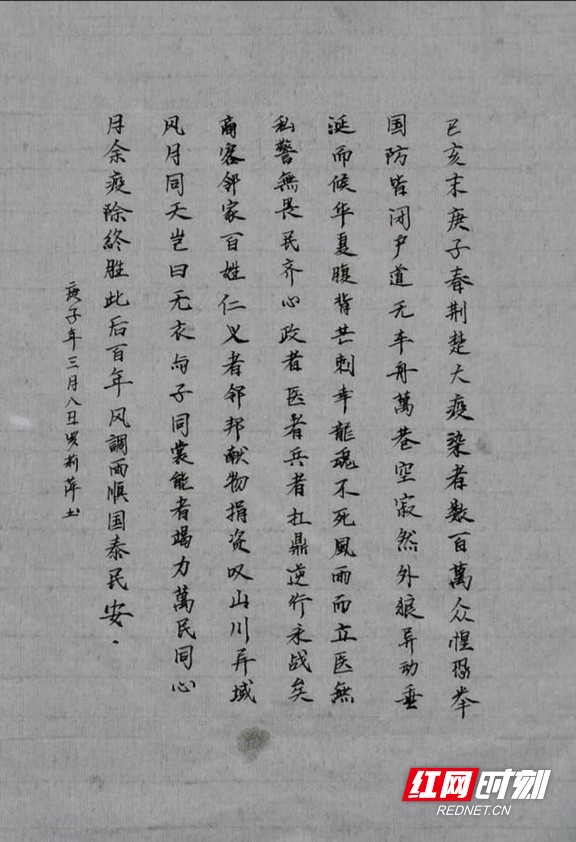 己亥末庚子春荆楚大疫染者数百萬众惶恐举
国防皆闭户道无车舟萬巷空寂然外狼异动垂
涎而候华夏腹背芒刺幸龍魂不死風雨而立医無
私警無畏民齐心政者医者兵者扛鼎逆行永战矣
商客邻家百姓仁义者邻邦献物捐资叹山川异域
风月同天岂曰无衣与子同裳能者竭力萬民同心
月余疫除終胜此后百年风調雨顺国泰民安.
庚子年三月八日罗莉萍书
红网时刻
REDNET.CN